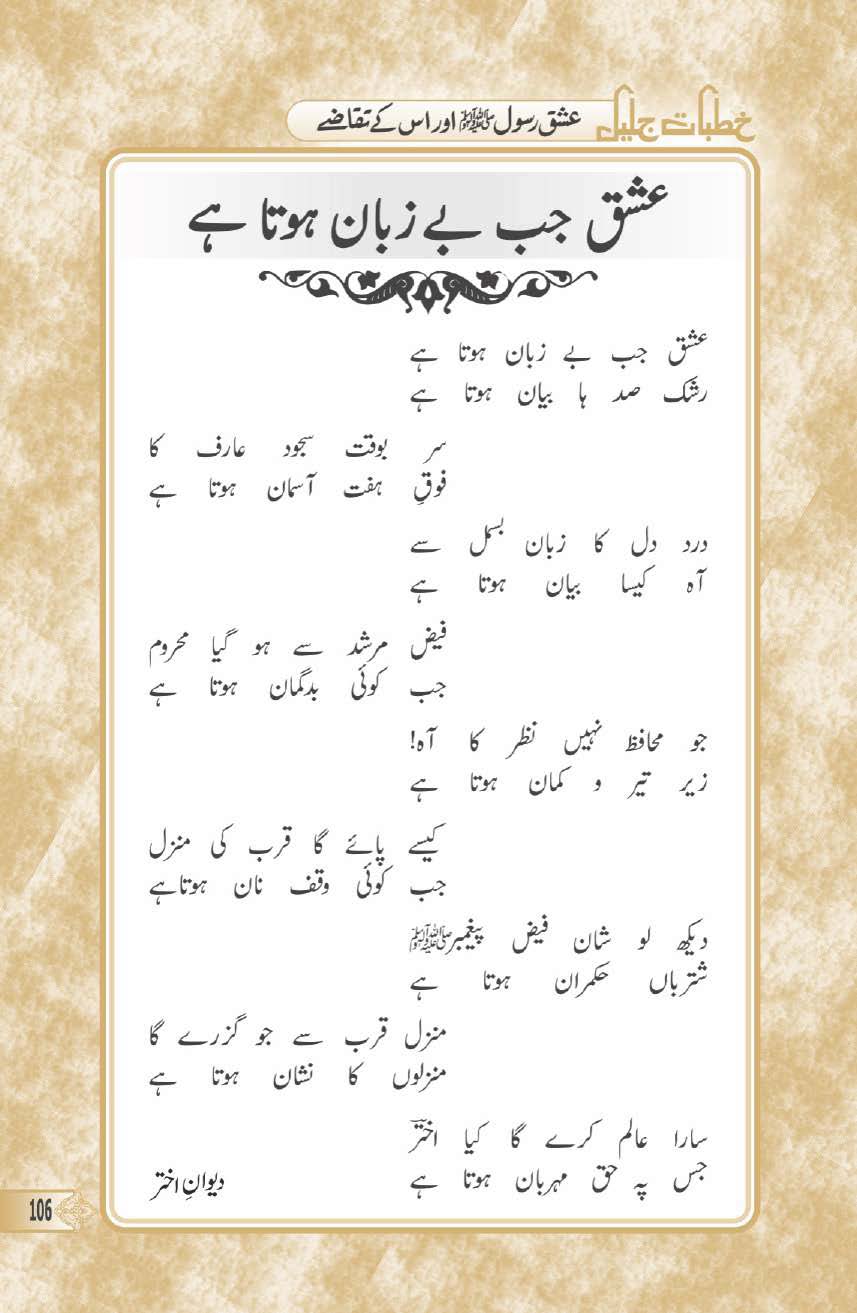 خطبات جلیل
عشق رسول ﷺ اور اس کے تقاضے
عشق جب بے زبان ہوتا ہے
عشق جب بے زبان ہوتا ہے
رشک صد ہا بیان ہوتا ہے
سر بوقت سجود عارف کا
فوقِ ہفت آسمان ہوتا ہے
درد دل کا زبان بسمل سے
آہ کیسا بیان ہوتا ہے
فیض مرشد سے ہو گیا محروم
جب کوئی بدگمان ہوتا ہے
جو محافظ نہیں نظر کا آہ!
زیر تیر و کمان ہوتا ہے
کیسے پائے گا قرب کی منزل
جب کوئی وقف نان ہوتاہے
دیکھ لو شان فیض پیغمبرﷺ
شترباں حکمران ہوتا ہے
منزل قرب سے جو گزرے گا
منزلوں کا نشان ہوتا ہے
سارا عالم کرے گا کیا اخترؔ
جس پہ حق مہربان ہوتا ہے
دیوانِ اختر
106